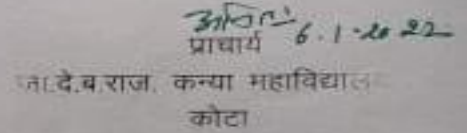 6.1.2022
प्राचार्य
जा.दे.ब.राज. कन्या महाविद्याल
कोटा